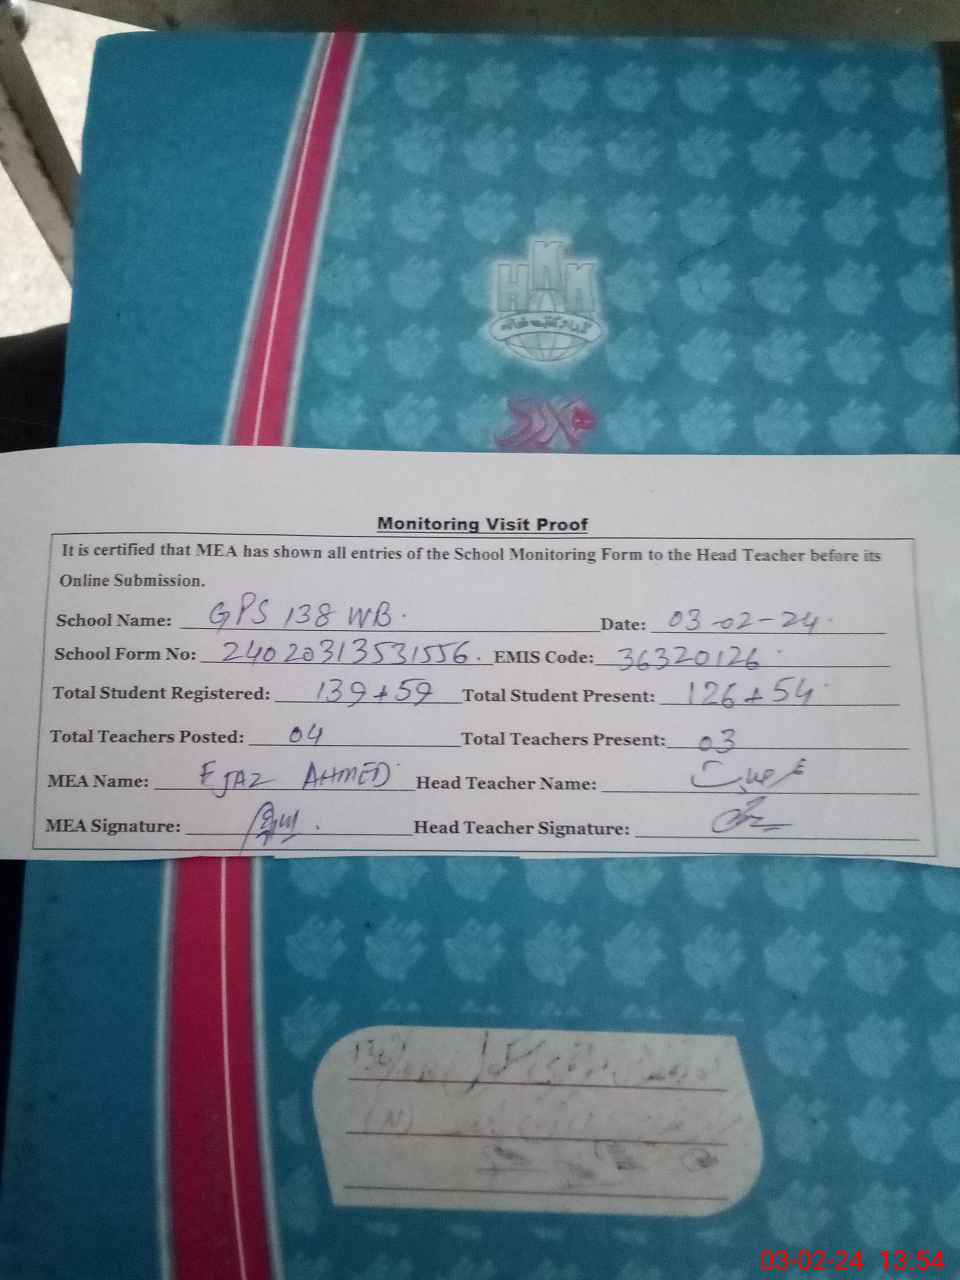 HKM
Monitoring Visit Proof
It is certified that MEA has shown all entries of the School Monitoring Form to the Head Teacher before its
Online Submission.
School Name: GPS 138 WB. Date: 03-02-24.
School Form No: 24020313531556. EMIS Code: 36320126
Total Student Registered: 139+59 Total Student Present: 126+54
Total Teachers Posted: 04 Total Teachers Present: 03
MEA Name: EJAZ AHMED Head Teacher Name:
MEA Signature: Head Teacher Signature:
(N)
03-02-24 13:54